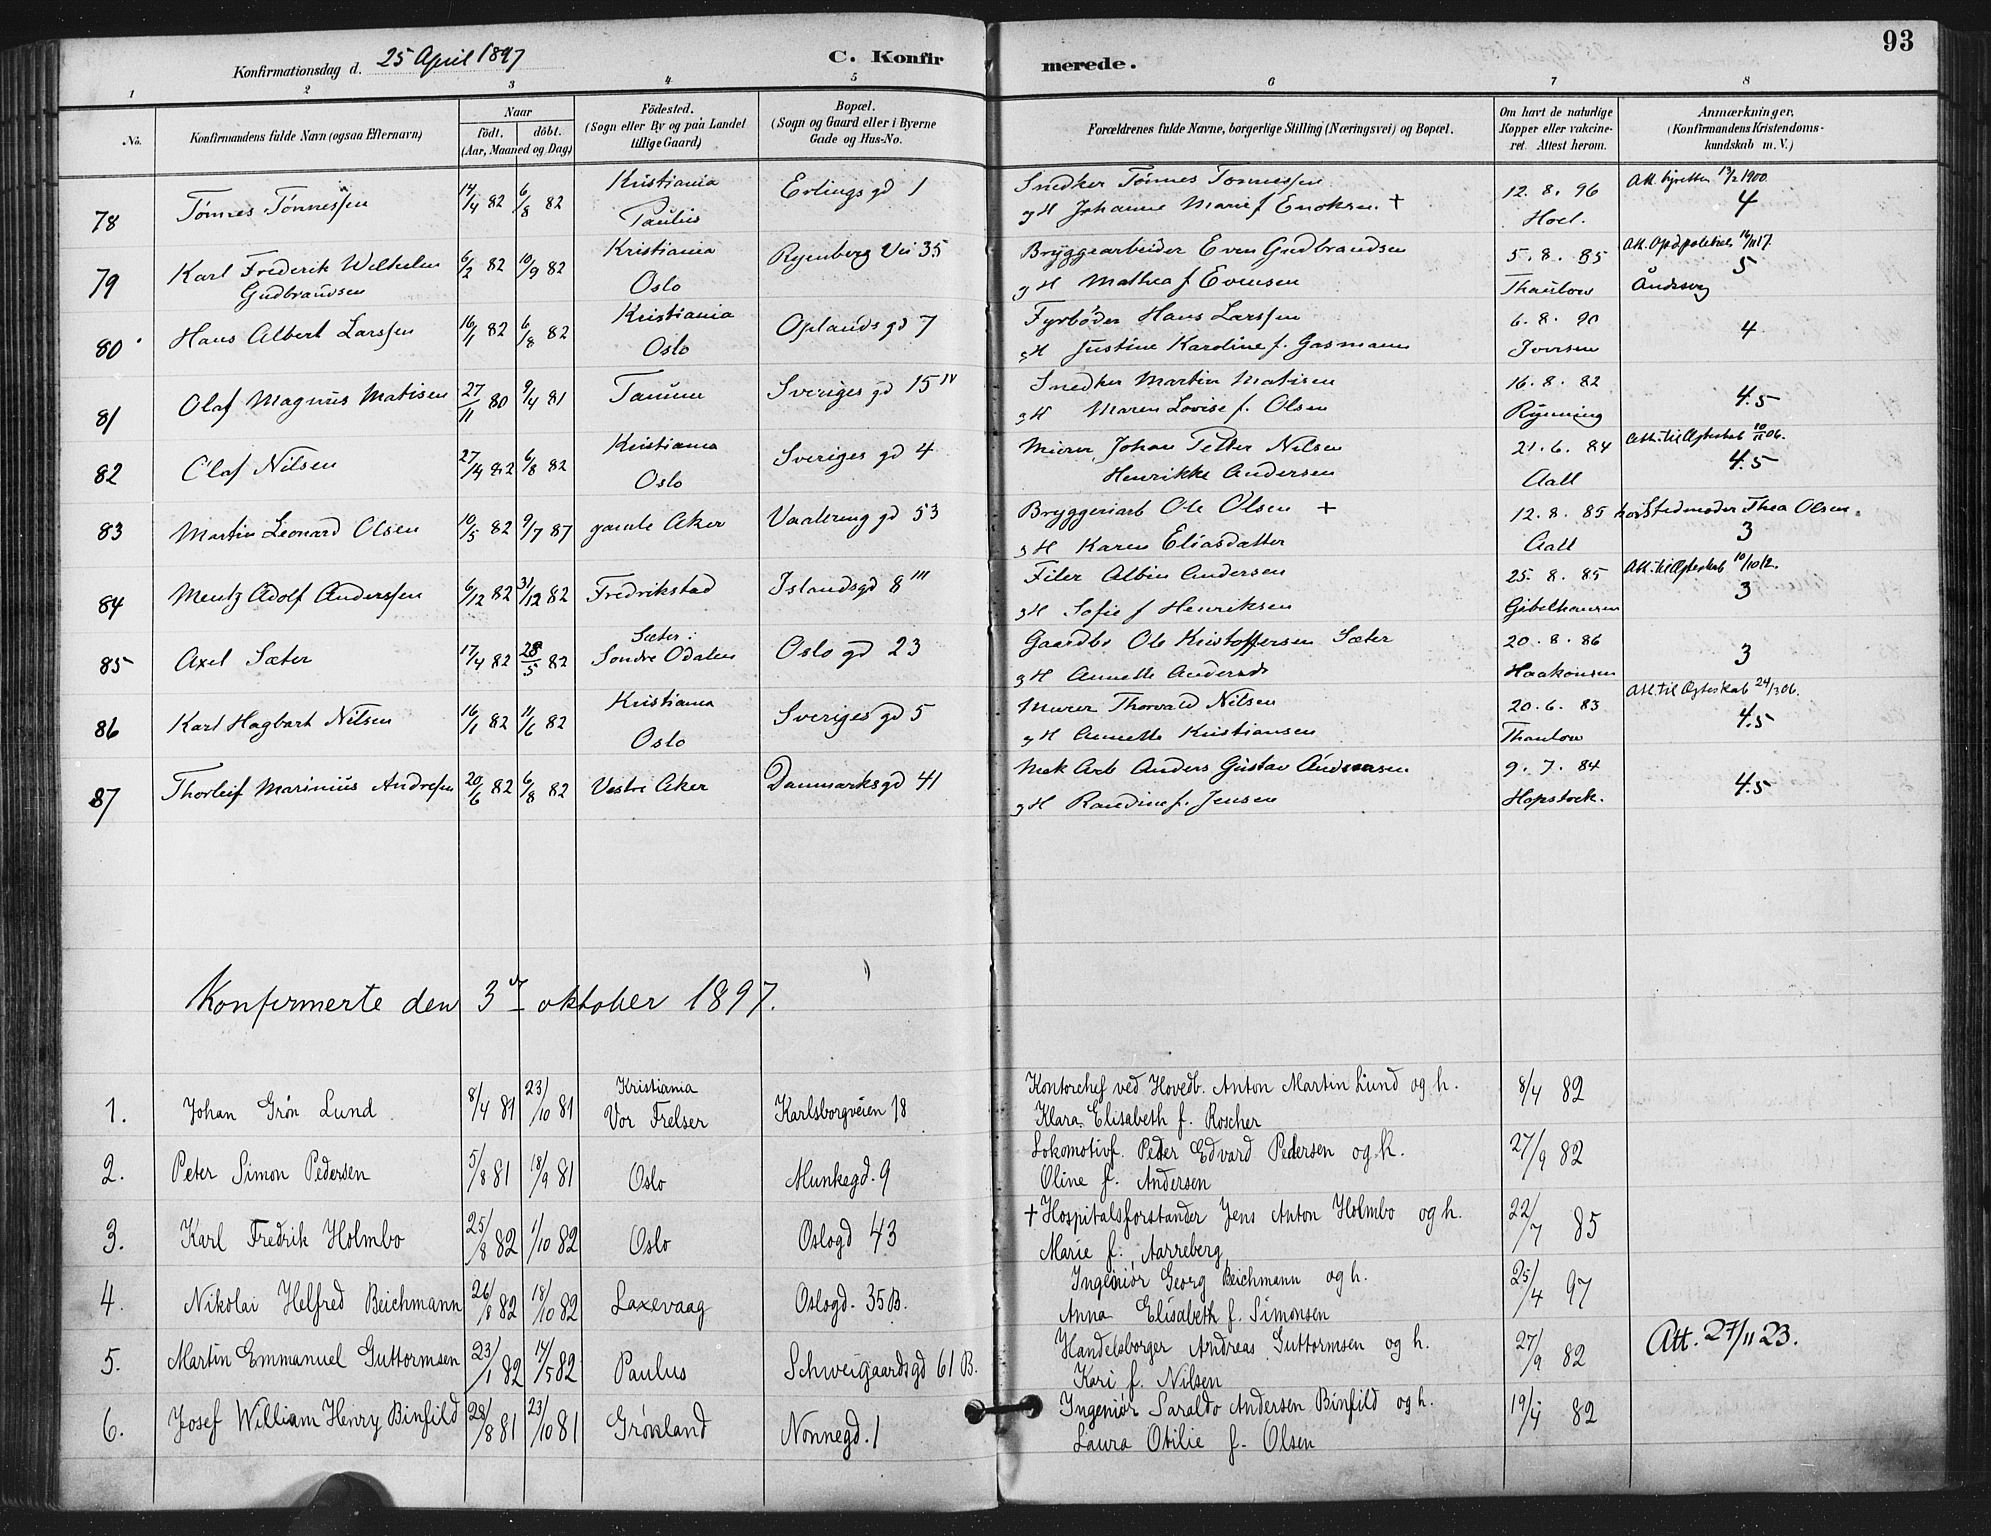 93
Konfirmationsdag d. 25 April 1897 C. Konfirmerede.
1 2 3 4 5 6 7 8
No. Konfirmandens fulde Navn (ogsaa Efternavn) Naar födt. döbt. (Aar, Maaned og Dag) Födested. (Sogn eller By og paa Landet tillige Gaard) Bopæl. (Sogn og Gaard eller i Byerne Gade og Hus-No. Forældrenes fulde Navne, borgerlige Stilling (Næringsvei) og Bopæl. Om havt de naturlige Kopper eller vakcineret. Attest herom. Anmærkninger. (Konfirmandens Kristendomskundskab m. V.)
78 Tønnes Tønnessen 14/4 82 6/8 82 Kristiania Paulus Erlings gd 1 Snedker Tønnes Tønnessen
g H Johanne Marie f Enoksen + 12. 8. 96 Hoel. 13/2 1900 4
79 Karl Frederik Wilhelm Gudbrandsen 6/2 82 10/9 82 Kristiania Oslo Ryenberg Vei 35 Bryggearbeider Even Gudbrandsen
g H Mathea f Evensen 5. 8. 85 Thaulow Att. 16/11 17. 5
80 Hans Albert Larssen 16/1 82 6/8 82 Kristiania Oslo Oplands gd 7 Fyrbøder Hans Larssen
g H Justine Karoline f. Gasmann 6. 8. 90 Iversen 4
81 Olaf Magnus Matisen 27/11 80 9/4 81 Tanum Sveriges gd 15 IV Snedker Martin Matisen
g H Maren Lovise f. Olsen 16. 8. 82 Rynning 4.5
82 Olaf Nilsen 27/4 82 6/8 82 Kristiania Oslo Sveriges gd 4 Murer Johan Petter Nilsen
Henrikke Andersen 21. 6. 84 Aall Att. til Ægteskab 10/11 06. 4.5
83 Martin Leonard Olsen 10/5 82 9/7 87 gamle Aker Vaalereng gd 53 Bryggeriarb Ole Olsen +
g H Karen Eliasdatter 12. 8. 85 Aall Stedmoder Thea Olsen. 3
84 Mentz Adolf Anderssen 6/12 82 31/12 82 Fredrikstad Islandsgd 8 III Filer Albin Andersen
g H Sofie f Henriksen 25. 8. 85 Gibelhausen Att. til Ægteskab 10/10 12. 3
85 Axel Sæter 17/4 82 28/5 82 Sæter: Søndre Odalen Oslo gd 23 Gaardbr Ole Kristoffersen Sæter
g H Annette Andersd 20. 8. 86 Haakonsen 3
86 Karl Hagbart Nilsen 16/1 82 11/6 82 Kristiania Oslo Sveriges gd 5 Murer Thorvald Nilsen
g H Annette Kristiansen 20. 6. 83 Thaulow Att. til Ægteskab 24/3 06. 4.5
87 Thorleif Marinius Andresen 20/6 82 6/8 82 Vestre Aker Danmarksgd 41 Mek Arb Anders Gustav Andersen
g H Randine f. Jensen 9. 7. 84 Hopstock. 4.5
Konfirmerte den 3. oktober 1897.
1. Johan Grøn Lund 8/4 81 23/10 81 Kristiania Vor Frelser Karlsborgveien 18 Kontorchef ved Hovedb. Anton Martin Lund og h.
Klara Elisabeth f. Roscher 8/4 82
2. Peter Simon Pedersen 5/8 81 18/9 81 Oslo Munkegd. 9 Lokomotivf. Peder Edvard Pedersen og h.
Oline f. Andersen 27/9 82
3. Karl Fredrik Holmbo 25/8 82 1/10 82 Oslo Oslogd 43 + Hospitalsforstander Jens Anton Holmbo og h.
Marie f. Aarreberg 22/7 85
4. Nikolai Helfred Beichmann 26/8 82 18/10 82 Laxevaag Oslogd. 35 B. Ingeniør Georg Beichmann og h.
Anna Elisabeth f. Simonsen 25/4 97
5. Martin Emmanuel Guttormsen 23/1 82 14/5 82 Paulus Schweigaardsgd 61 B. Handelsborger Andreas Guttormsen og h.
Kari f. Nilsen 27/9 82 Att. 27/11 23.
6. Josef William Henry Binfild 28/8 81 23/10 81 Grønland Nonnegd. 1 Ingeniør Saraldo Andersen Binfild og h.
Laura Otilie f. Olsen 19/4 82